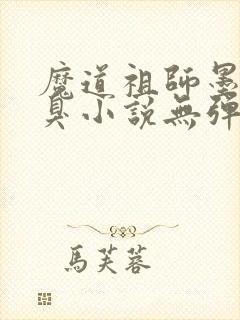 魔道祖師墨
臭小說無彈
馬芙蓉